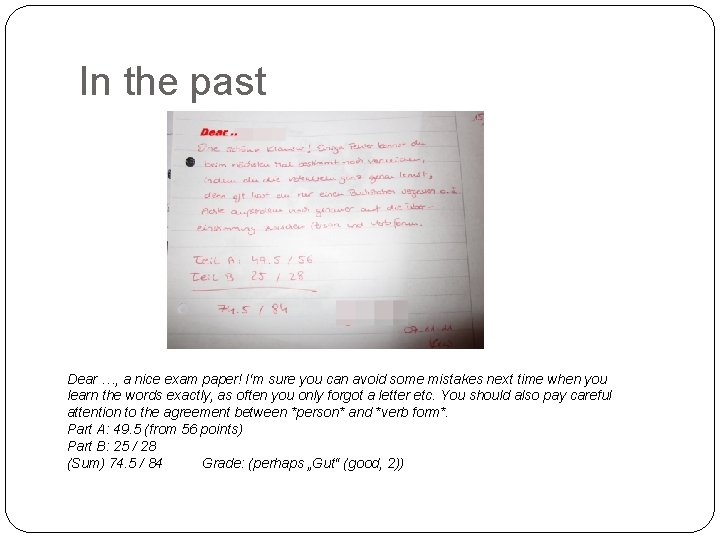 In the past
15
Dear..
Eine schöne Klausur! Einige Fehler kannst du
beim nächsten Mal bestimmt noch vermeiden,
indem du die Vokabeln ganz genau lernst,
denn oft hast du nur einen Buchstaben vergessen o.ä.
Achte außerdem noch genauer auf die Über-
einstimmung zwischen Person und Verbform.
Teil A: 49.5 / 56
Teil B 25 / 28
74.5 / 84
Dear …, a nice exam paper! I'm sure you can avoid some mistakes next time when you
learn the words exactly, as often you only forgot a letter etc. You should also pay careful
attention to the agreement between *person* and *verb form*.
Part A: 49.5 (from 56 points)
Part B: 25 / 28
(Sum) 74.5 / 84 Grade: (perhaps „Gut“ (good, 2))